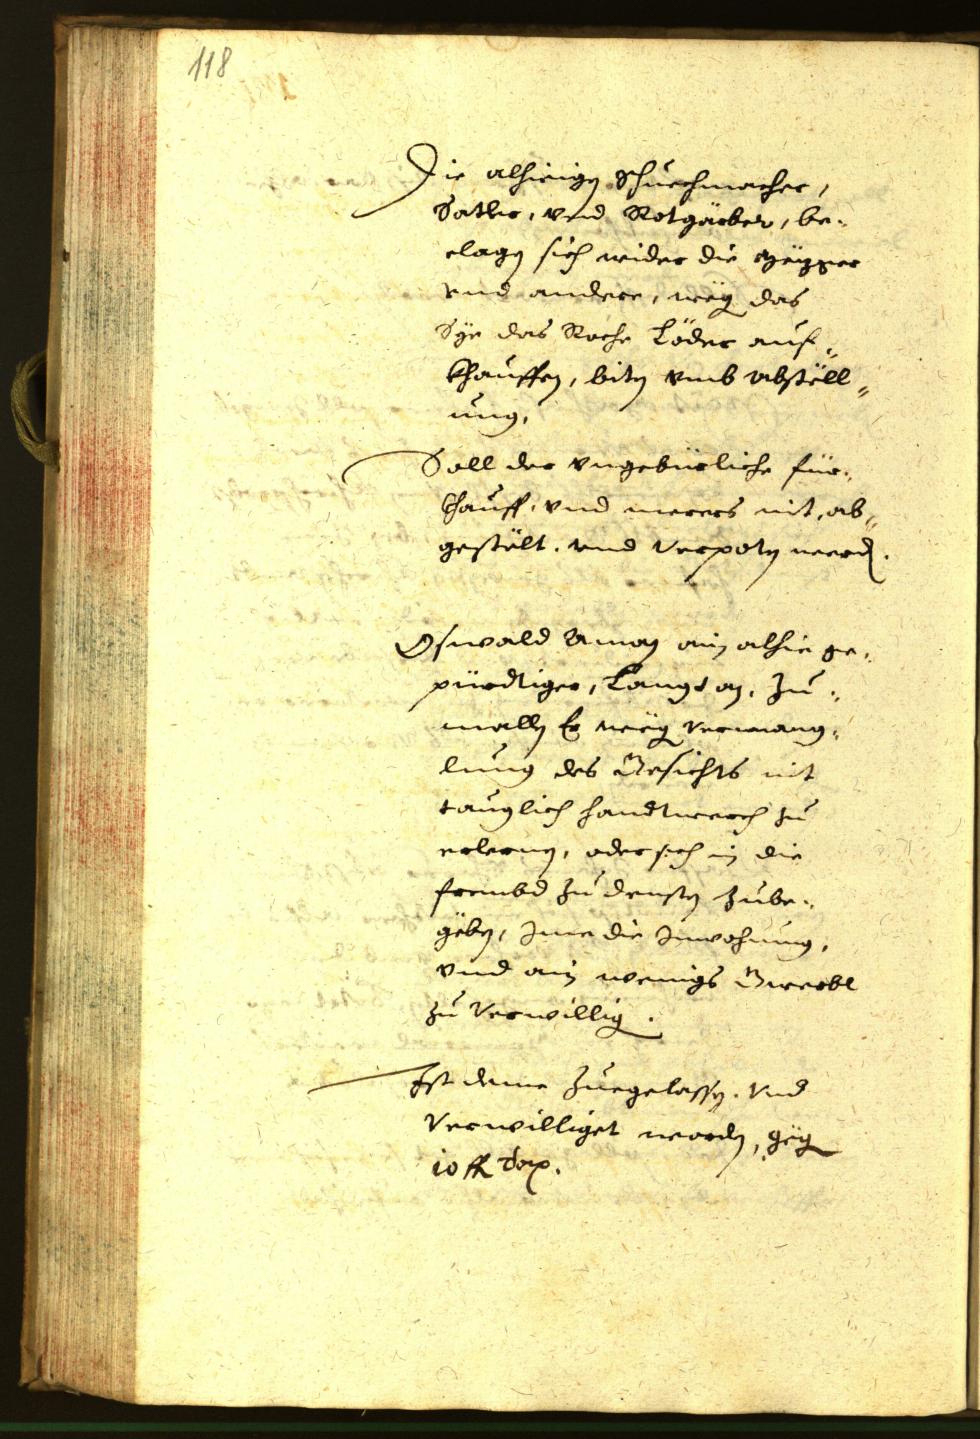 118
Die alhieigen Schuechmacher,
Satler, vnd Rotgärber, be-
clagen sich wider die
vnd andere, weg. das
Sÿe das Roche Löder auf-
khauffen, biten vmb abställ-
ung,
Soll der vngebürliche für-
khauff, vnd merers nit, ab-
gestält. vnd Verpoten werd.
Oswald ain alhie ge-
pürdtiger, Langt an, Zu-
mallen Er weg Vermang-
lung des Gesichts nit
tauglich handtwerch zu
erlernen, oder sich in die
frembd zu diensten zube-
geben, Ime die Inwohnung,
vnd ain wenigs Gwerbl
zu Verwillig.
Ist deme Zuegelassen. Vnd
Verwilliget worden, geg
10 fl Tax.